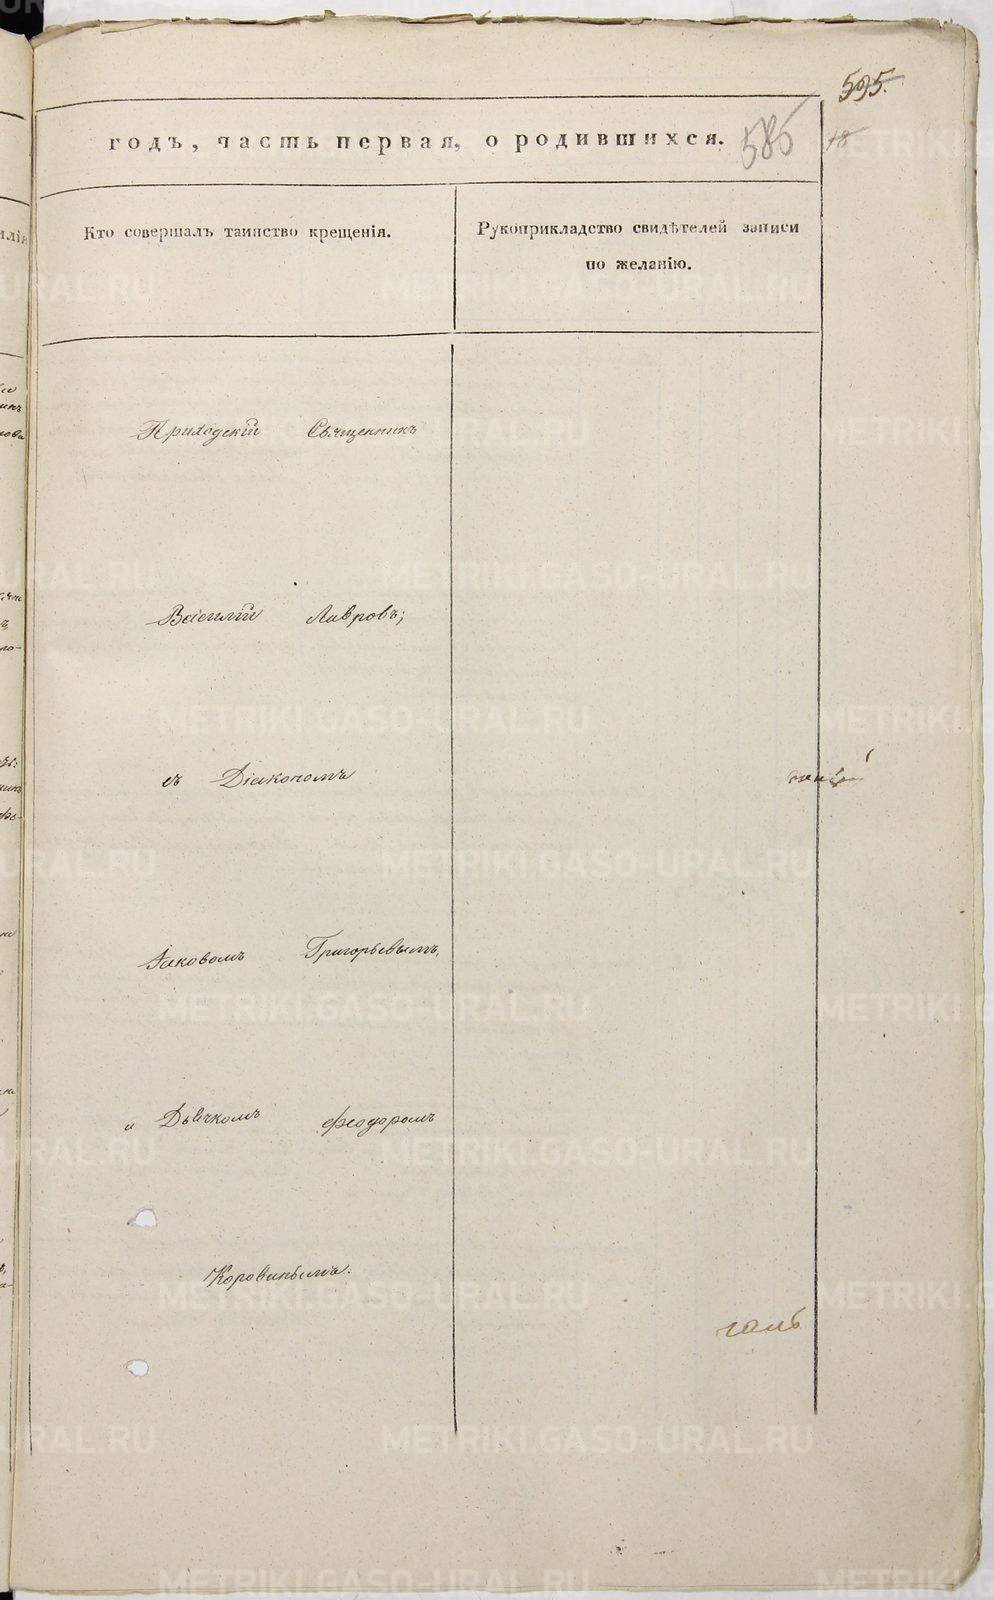 595.
годъ, часть первая, о родившихся.
585
18
Кто совершалъ таинство крещенія.
Рукоприкладство свидѣтелей записи
по желанію.
Приходскій Священникъ
Василій Лавровъ;
съ Діакономъ
Іаковомъ Григорьевымъ,
и Дьячкомъ Феодоромъ
Коровинымъ.
METRIKI.GASO-URAL.RU